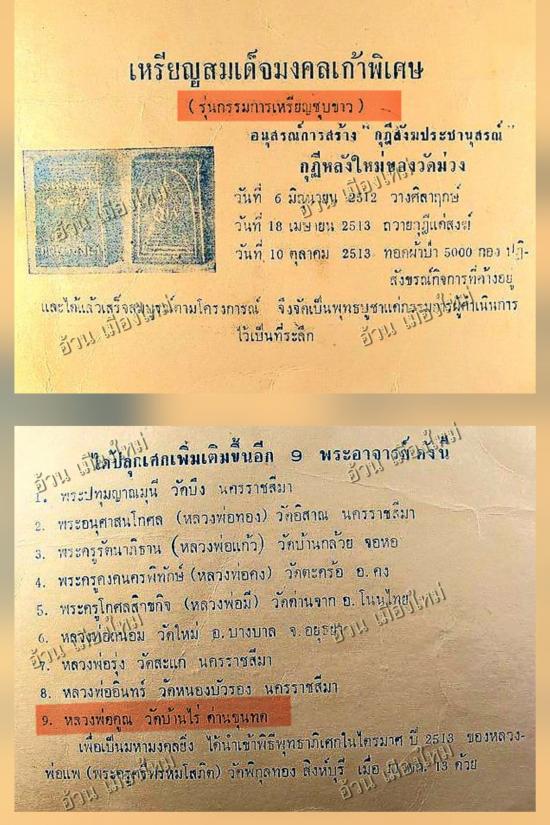 เหรียญสมเด็จมงคลเก้าพิเศษ
(รุ่นกรรมการเหรียญชุบขาว)
อนุสรณ์การสร้าง "กุฏิสังฆประชานุสรณ์"
กุฏิหลังใหม่ของวัดม่วง
วันที่ 6 มิถุนายน 2512 วางศิลาฤกษ์
วันที่ 18 เมษายน 2513 ถวายกุฏิแด่สงฆ์
วันที่ 10 ตุลาคม 2513 ทอดผ้าป่า 5000 กอง ปฏิ-
สังขรณ์กิจการที่ค้างอยู่
และได้แล้วเสร็จสมบูรณ์ตามโครงการณ์ จึงจัดเป็นพุทธบูชาแด่กรรมการผู้ดำเนินการ
ไว้เป็นที่ระลึก
อ้วน เมืองใหม่
อ้วน เมืองใหม่
อ้วน เมืองใหม่
อ้วน เมืองใหม่
ได้ปลุกเศกเพิ่มเติมขึ้นอีก 9 พระอาจารย์ดังนี้
1. พระปทุมญาณมุนี วัดบึง นครราชสีมา
2. พระอนุศาสนโกศล (หลวงพ่อทอง) วัดอิสาณ นครราชสีมา
3. พระครูรัตนาภิธาน (หลวงพ่อแก้ว) วัดบ้านกล้วย จอหอ
4. พระครูคงคนครพิทักษ์ (หลวงพ่อคง) วัดตะคร้อ อ.คง
5. พระครูโกศลสิาขกิจ (หลวงพ่อมี) วัดด่านจาก อ.โนนไทย
6. หลวงพ่อถนอม วัดใหม่ อ.บางบาล จ.อยุธยา
7. หลวงพ่อรุ่ง วัดสะแก นครราชสีมา
8. หลวงพ่ออินทร์ วัดหนองบัวรอง นครราชสีมา
9. หลวงพ่อคูณ วัดบ้านไร่ ด่านขุนทด
เพื่อเป็นมหามงคลยิ่ง ได้นำเข้าพิธีพุทธาภิเศกในไตรมาศ ปี 2513 ของหลวง-
พ่อแพ (พระครูศรีพรหมโสภิต) วัดพิกุลทอง สิงห์บุรี เมื่อ 13 ด้วย
อ้วน เมืองใหม่
อ้วน เมืองใหม่
อ้วน เมืองใหม่
อ้วน เมืองใหม่
อ้วน เมืองใหม่
อ้วน เมืองใหม่